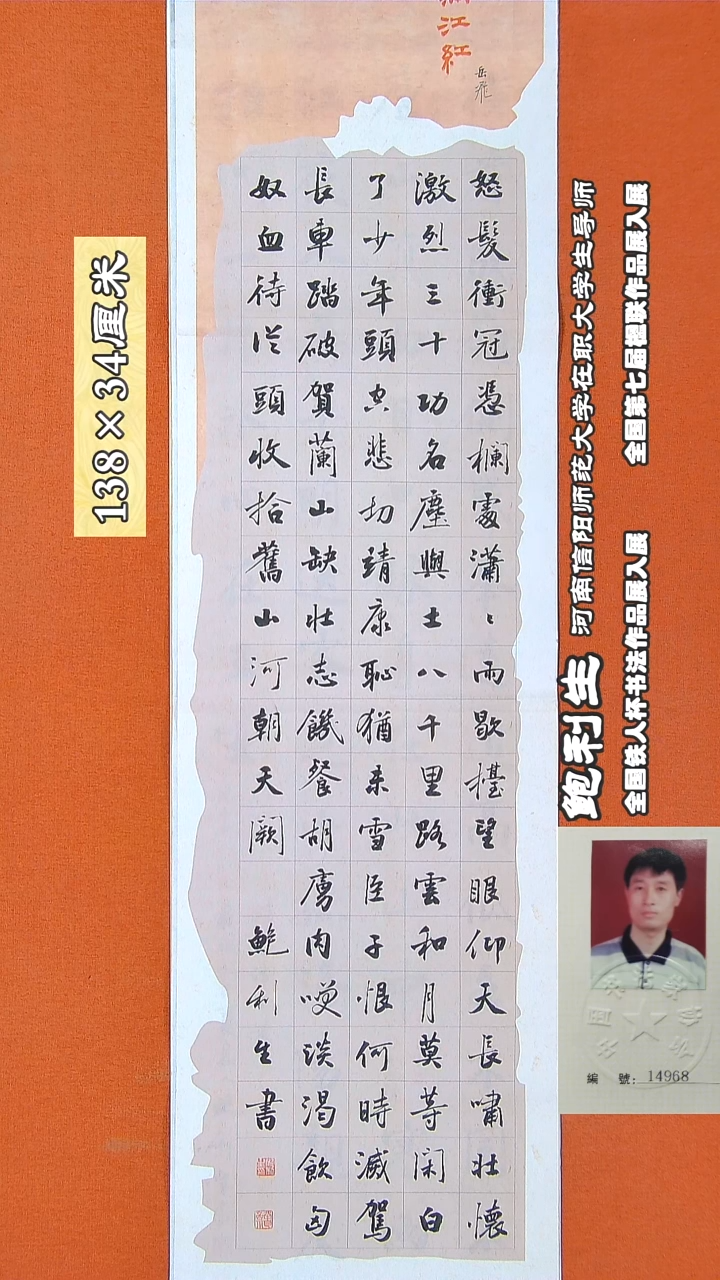 江紅
岳飛
怒髮衝冠憑欄處瀟〻雨歇檯望眼仰天長嘯壯懷
激烈三十功名塵與土八千里路雲和月莫等閑白
了少年頭空悲切靖康恥猶未雪臣子恨何時滅駕
長車踏破賀蘭山缺壯志饑餐胡虜肉咲談渴飲匈
奴血待從頭收拾舊山河朝天闕
鮑利生書
138×34厘米
鲍利生 河南信阳师范大学在职大学生导师
全国铁人杯书法作品展入展 全国第七届楹联作品展入展
編 號: 14968